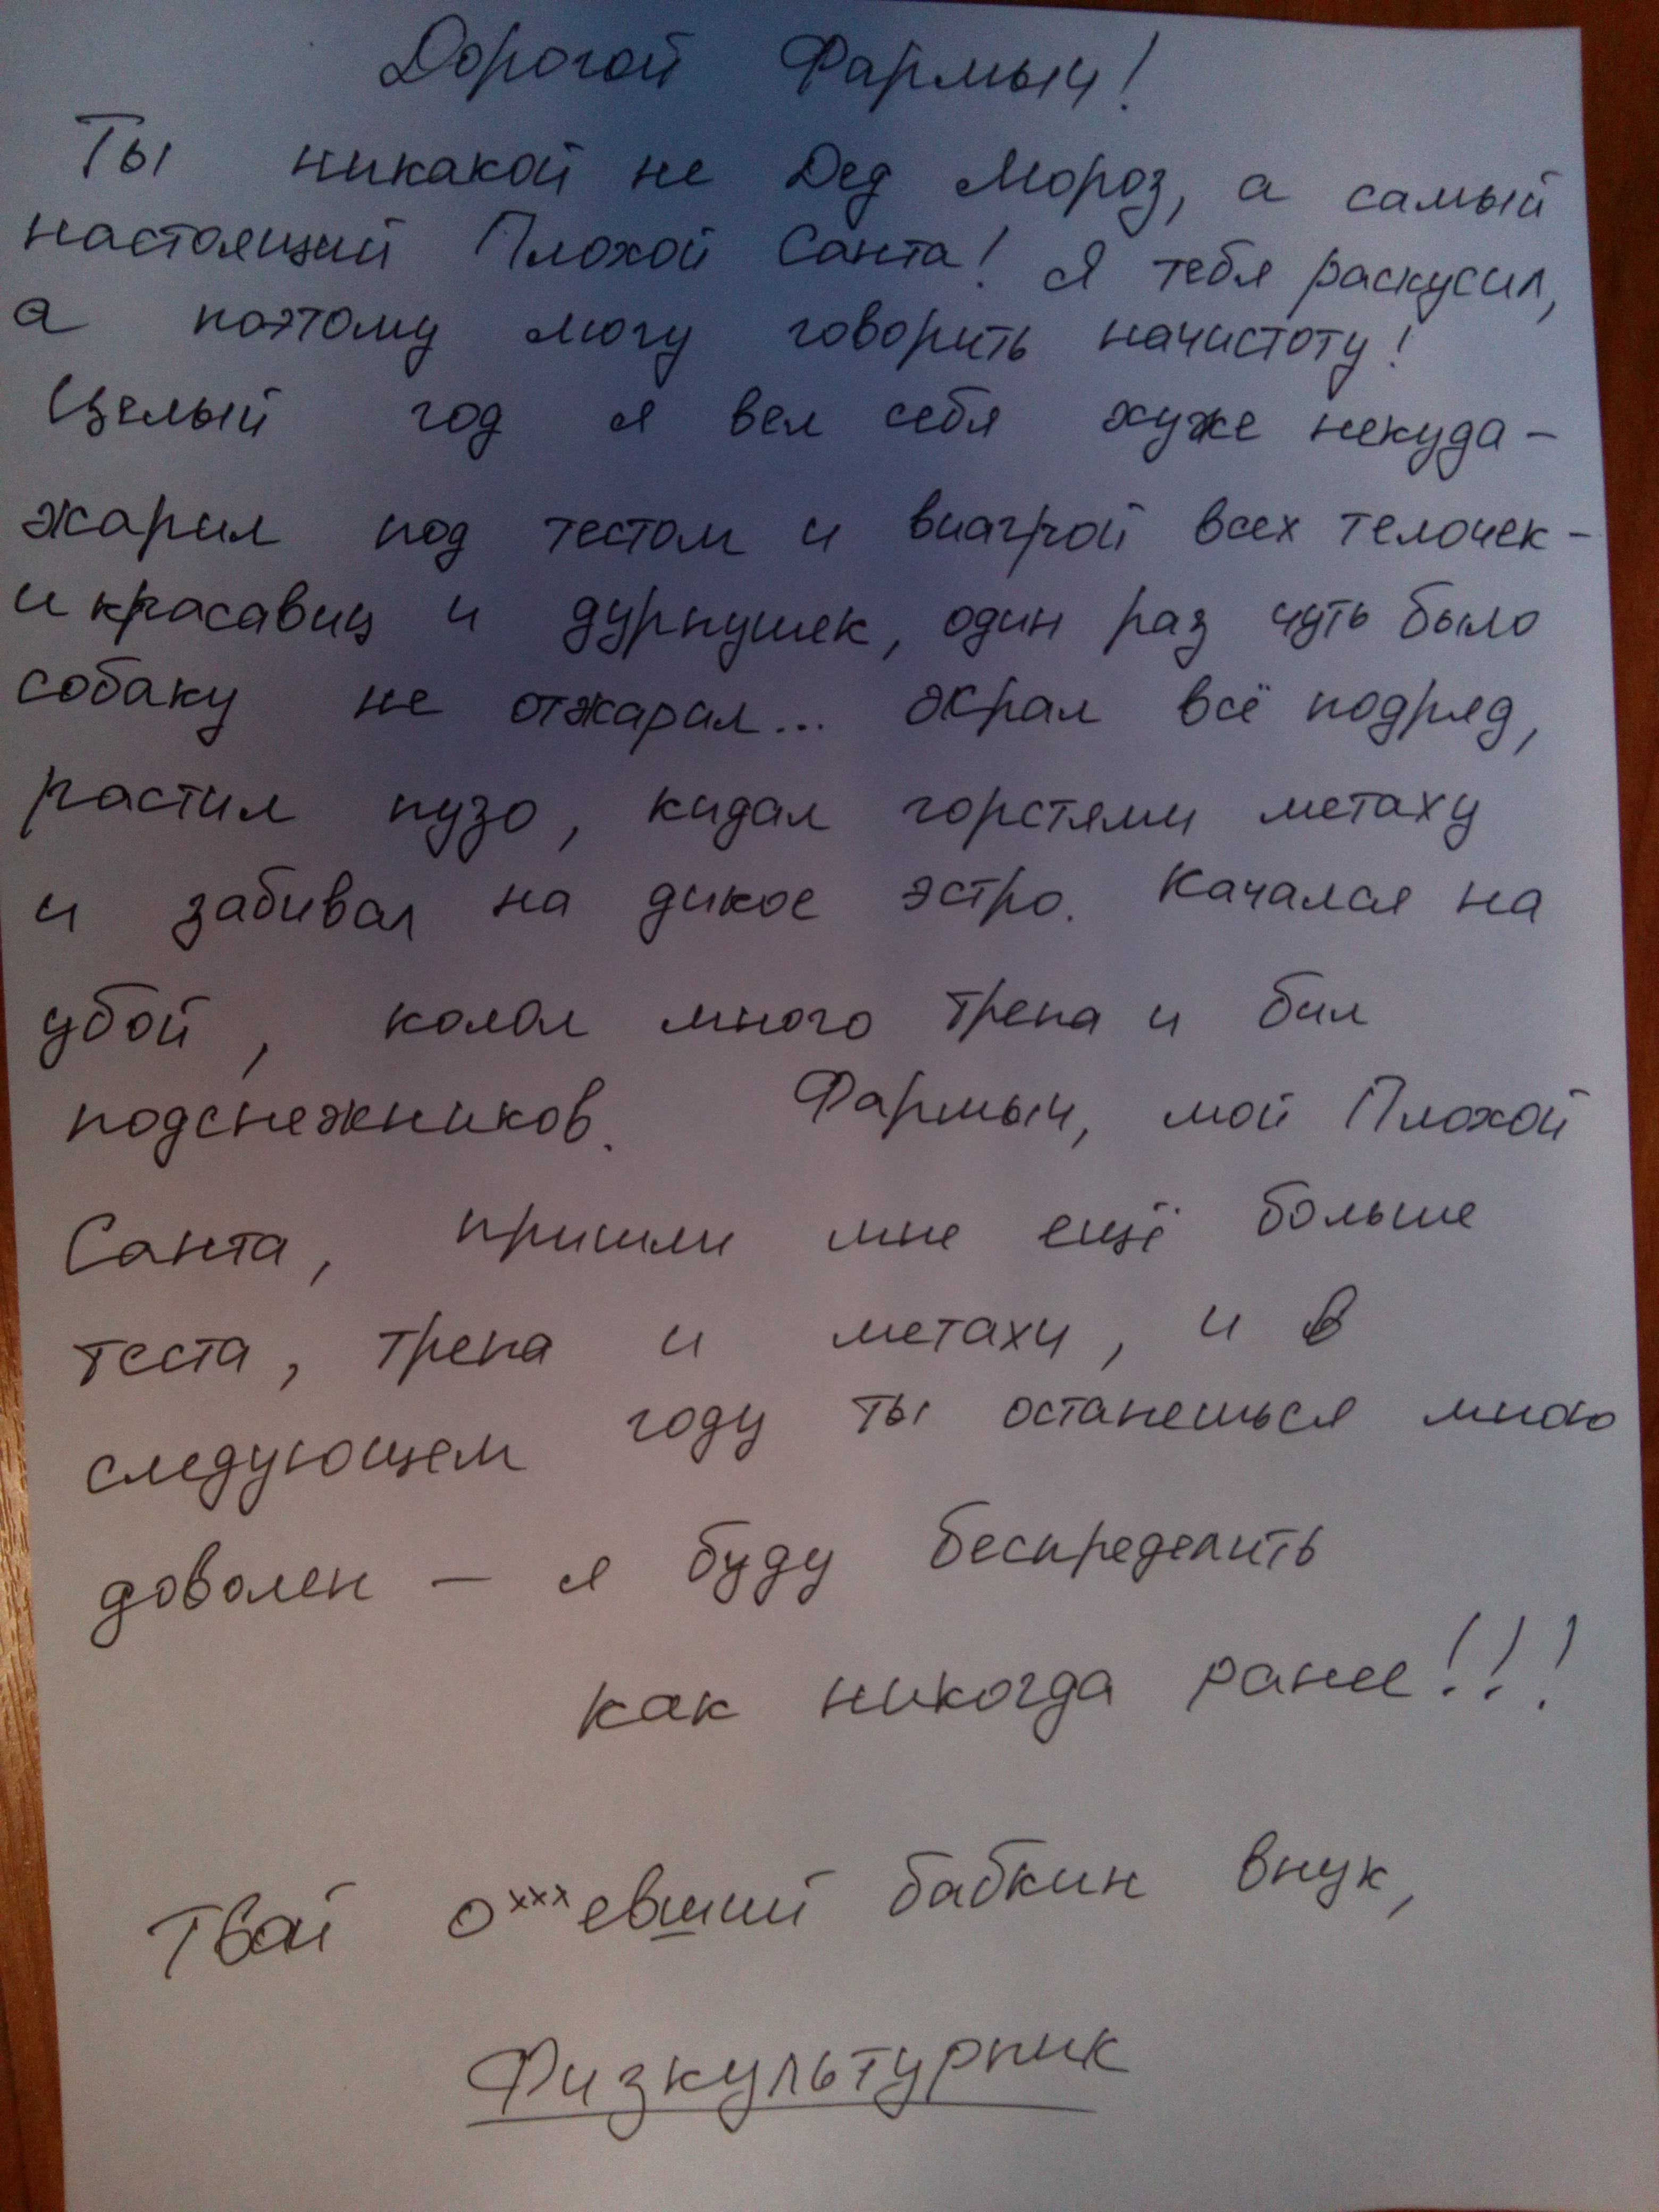 Дорогой Фармыч!
Ты никакой не Дед Мороз, а самый
настоящий Плохой Санта! Я тебя раскусил,
а поэтому могу говорить начистоту!
Целый год я вел себя хуже некуда -
жарил под тестом и виагрой всех телочек -
и красавиц и дурнушек, один раз чуть было
собаку не отжарал... Жрал всё подряд,
растил пузо, кидал горстями метаху
и забивал на дикое эстро. Качался на
убой, колол много трена и бил
подснежников. Фармыч, мой Плохой
Санта, пришли мне ещё больше
теста, трена и метахи, и в
следующем году ты останешься мною
доволен - я буду беспределить
как никогда ранее!!!
Твой о***евший бабкин внук,
Физкультурник